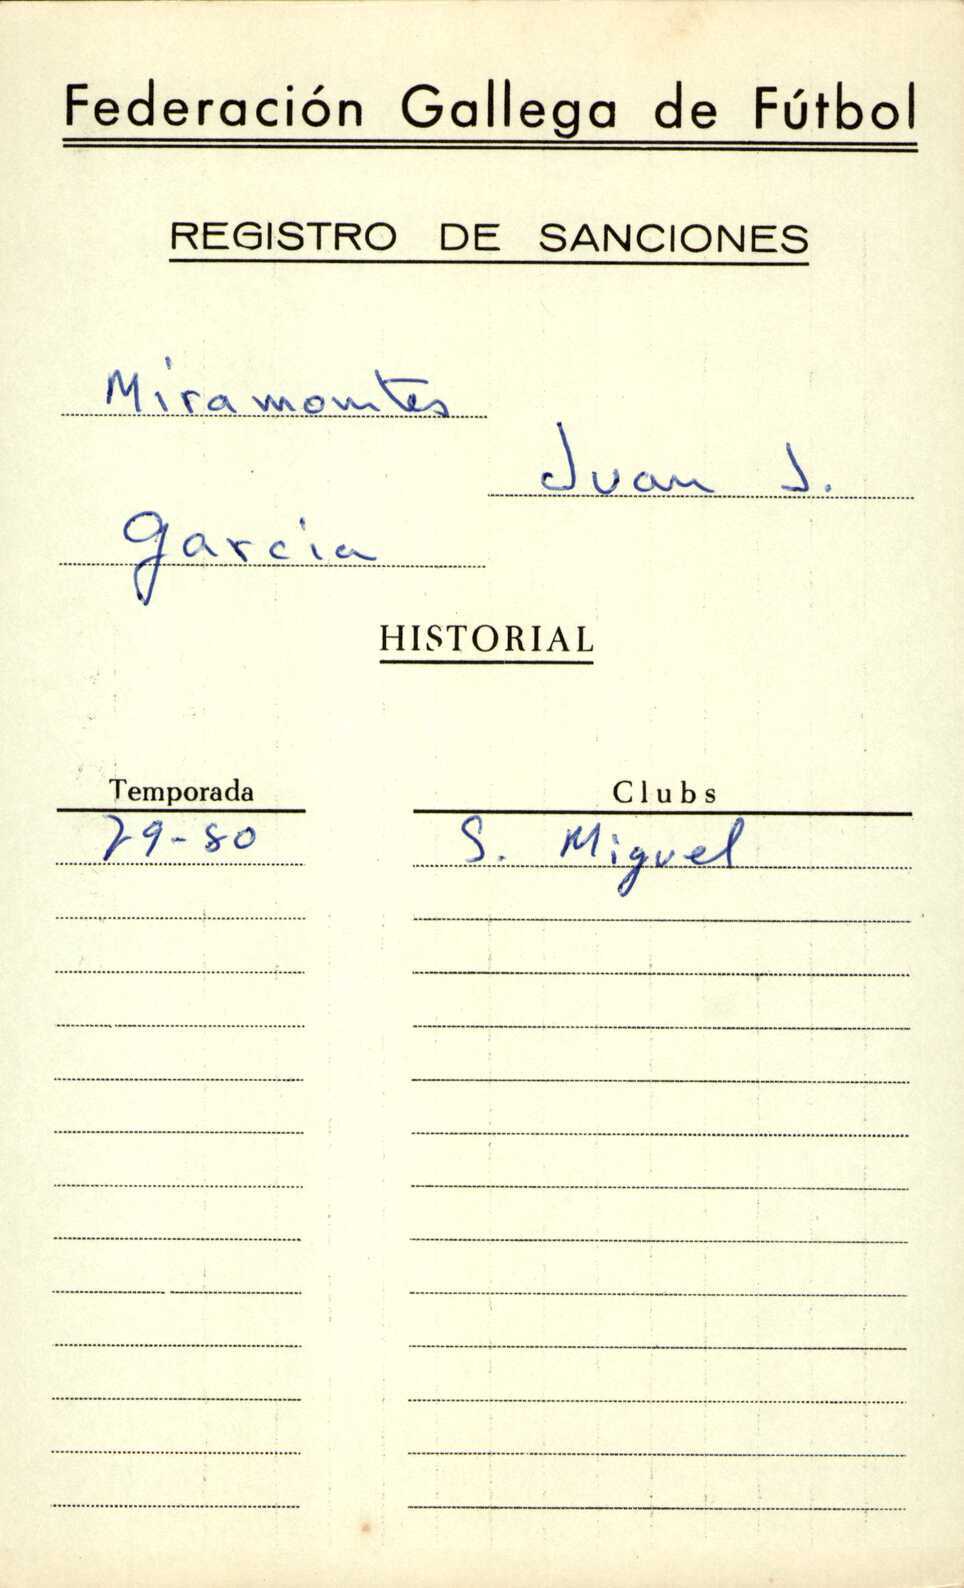 Federación Gallega de Fútbol
REGISTRO DE SANCIONES
Miramontes
Juan J.
Garcia
HISTORIAL
Temporada Clubs
79-80 S. Miguel